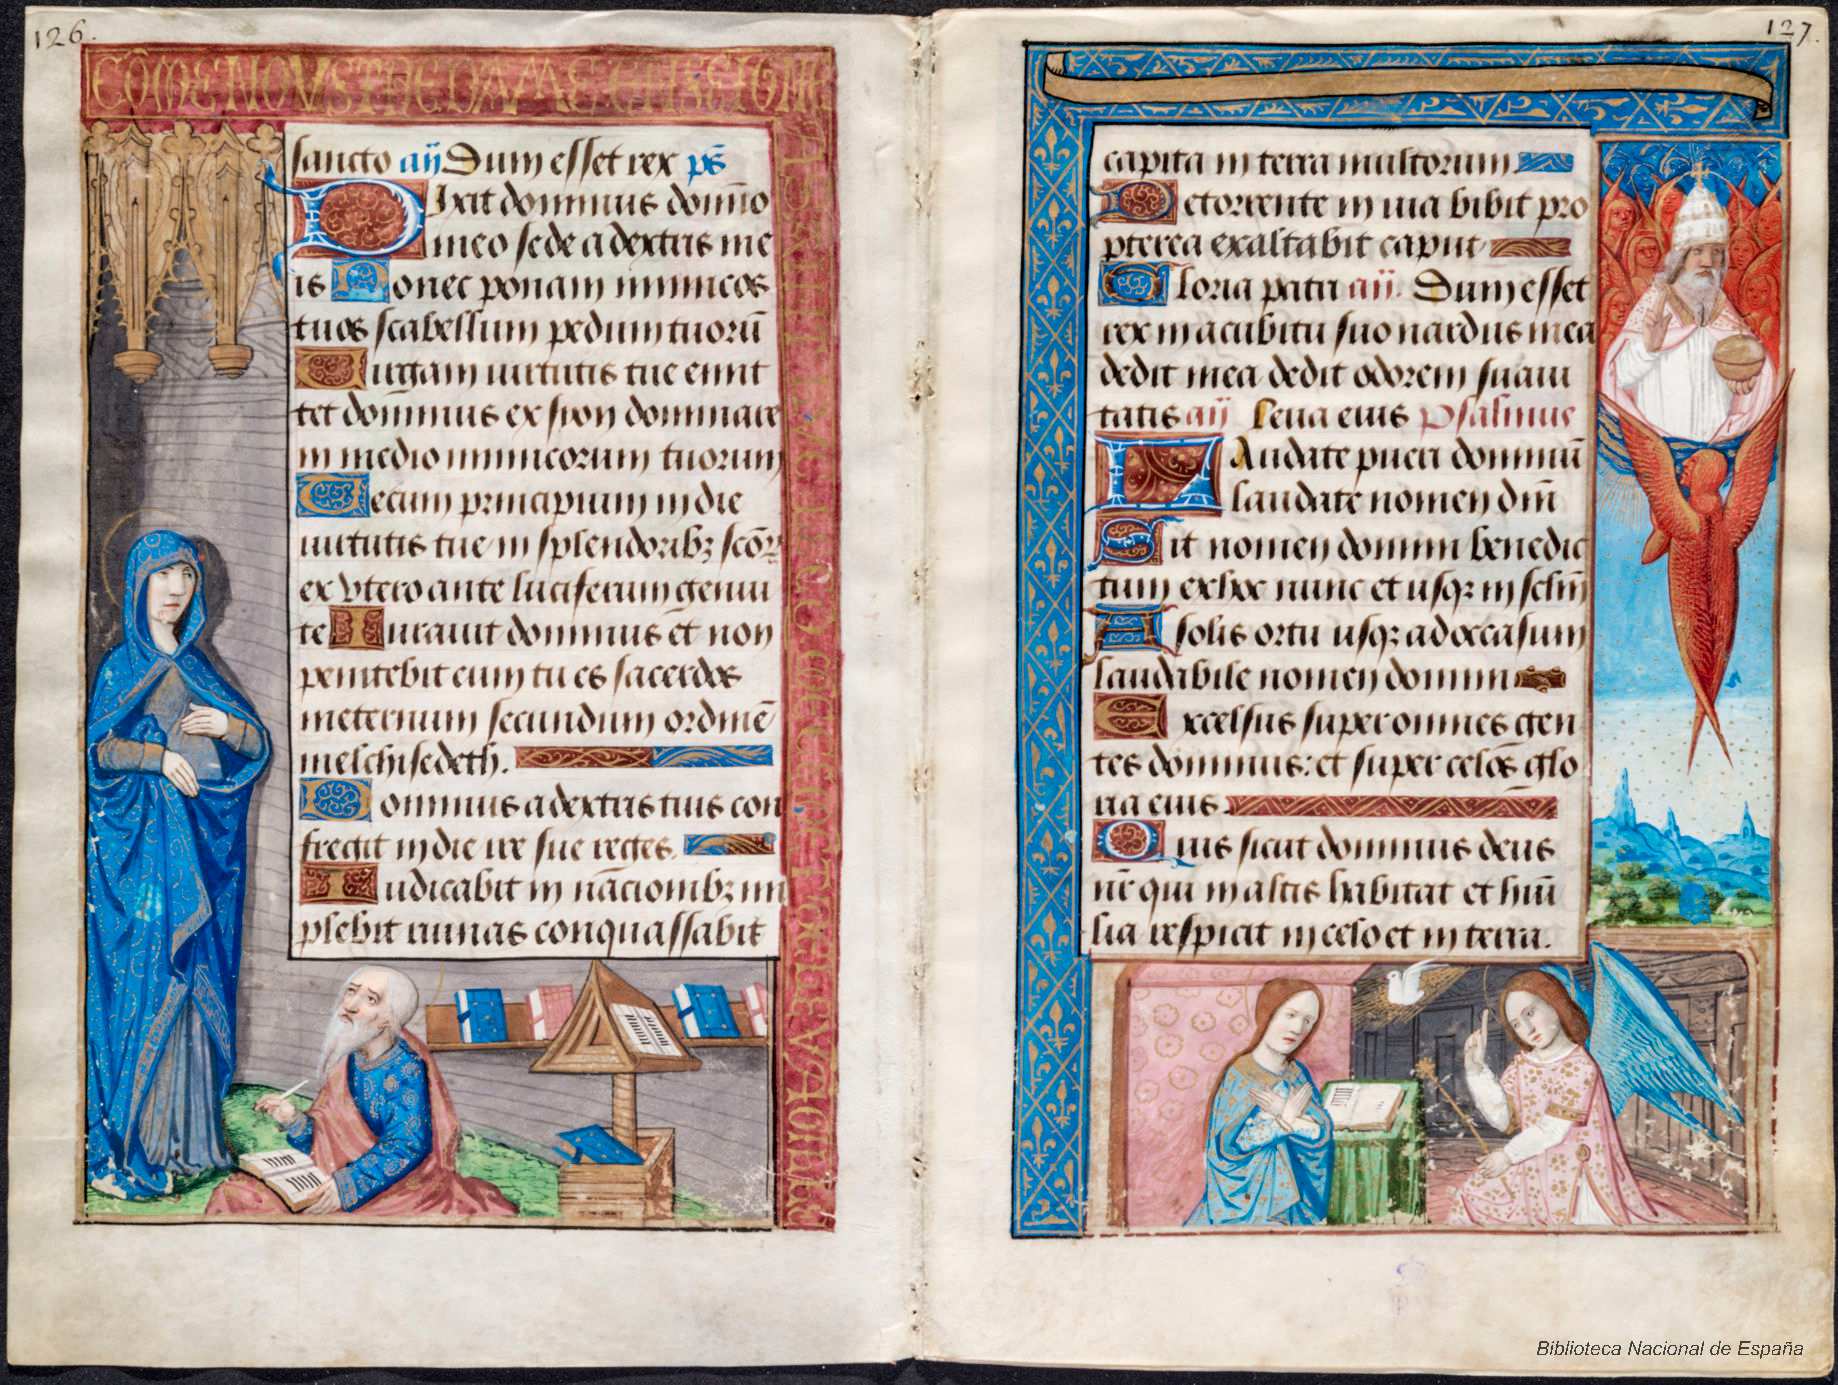 126.
sancto añ Dum esset rex ps̄
Dixit dominus domīo
meo sede a dextris me
is Donec ponam inimicos
tuos scabellum pedum tuorū
Uirgam uirtutis tue emit
tet dominus ex sion dominare
in medio inimicorum tuorum
Tecum principium in die
uirtutis tue in splendoribꝫ scōꝝ
ex vtero ante luciferum genui
te Iurauit dominus et non
penitebit eum tu es sacerdos
ineternum secundum ordinē
melchisedech.
Dominus a dextris tuis con
fregit in die ire sue reges.
Iudicabit in naciombꝫ im
plebit ruinas conquassabit
127.
capita in terra multorum
De torrente in uia bibit pro
pterea exaltabit caput
Gloria patri añ. Dum esset
rex in acubitu suo nardus mea
dedit mea dedit odorem suaui
tatis añ Leua eius Psalmus
LAudate pueri dominū
laudate nomen dn̄i
Sit nomen domini benedic
tum ex hoc nunc et usqꝫ in sclm̄
A solis ortu usqꝫ ad occasum
laudabile nomen domini
Excelsus super omnes gen
tes dominus: et super celos glo
ria eius.
Quis sicut dominus deus
nr̄ qui in altis habitat et hūi
lia respicit in celo et in terra.
Biblioteca Nacional de España